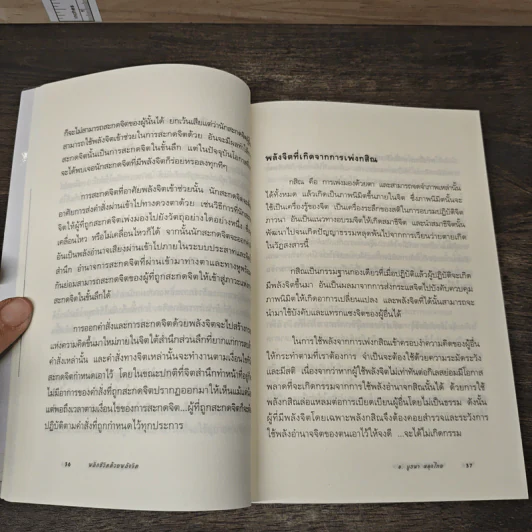 ก็จะไม่สามารถสะกดจิตของผู้นั้นได้ ยกเว้นเสียแต่ว่านักสะกดจิต
สามารถใช้พลังจิตเข้าช่วยในการสะกดจิตด้วย อันจะมีผลทำให้
สะกดจิตนั้นเป็นการสะกดจิตในชั้นลึก แต่ในปัจจุบันโอกาส
จะได้พบเจอนักสะกดจิตที่มีพลังจิตก็ร่อยหรอลงทุกทีๆ
การสะกดจิตที่อาศัยพลังจิตเข้าช่วยนั้น นักสะกดจิต
อาศัยการส่งคำสั่งผ่านเข้าไปทางดวงตาด้วย เช่นวิธีการที่นักสะกด
จิตให้ผู้ที่ถูกสะกดจิตเพ่งมองไปยังวัตถุอย่างใดอย่างหนึ่ง
เคลื่อนไหว หรือไม่เคลื่อนไหวก็ได้ จากนั้นนักสะกดจิตจะออก
อันเป็นพลังอำนาจเสียงผ่านเข้าไปภายในระบบประสาท
สำนึก อำนาจการสะกดจิตที่ผ่านเข้ามาทางตาและทางหู
กันย่อมสามารถสะกดจิตของผู้ที่ถูกสะกดจิตให้เข้าสู่ภาวะ
สะกดจิตในชั้นลึกได้
การออกคำสั่งและการสะกดจิตด้วยพลังจิตจะไปสร้าง
แห่งความคิดขึ้นมาใหม่ภายในจิตใต้สำนึกส่วนลึกที่ยากแก่การ
คำสั่งเหล่านั้น และคำสั่งทางจิตเหล่านั้นจะทำงานตามเงื่อนไข
สะกดจิตกำหนดเอาไว้ โดยในขณะปกติที่จิตสำนึกทำหน้าที่อยู่
ไม่มีอาการของคำสั่งที่ถูกสะกดจิตปรากฏออกมาให้เห็นแม้แต่
แต่พอถึงเวลาตามเงื่อนไขของการสะกดจิต...ผู้ที่ถูกสะกดจิตก็จะ
ปฏิบัติตามคำสั่งที่ถูกกำหนดไว้ทุกประการ
36 พลิกชีวิตด้วยพลังจิต
พลังจิตที่เกิดจากการเพ่งกสิณ
กสิณ คือ การเพ่งมองด้วยตา และสามารถจดจำภาพเหล่านั้น
ได้ทั้งหมด แล้วเกิดเป็นภาพนิมิตขึ้นภายในจิต ซึ่งภาพนิมิตนั้นจะ
ใช้เป็นเครื่องรู้ของจิต เป็นเครื่องระลึกของสติในการอบรมปฏิบัติจิต
ภาวนา อันเป็นแนวทางอบรมจิตให้เกิดสมาธิจิต และนำสมาธิจิตนั้น
พัฒนาไปจนเกิดปัญญาธรรมหลุดพ้นไปจากการเวียนว่ายตายเกิด
ในวัฏสงสารนี้
กสิณเป็นกรรมฐานกองเดียวที่เมื่อปฏิบัติแล้วผู้ปฏิบัติจะเกิด
มีพลังจิตขึ้นมา อันเป็นผลมาจากการส่งกระแสจิตไปบังคับควบคุม
ภาพนิมิตให้เกิดอาการเปลี่ยนแปลง และพลังจิตที่ได้นั้นสามารถจะ
นำมาใช้บังคับและแทรกแซงจิตของผู้อื่นได้
ในการใช้พลังจากการเพ่งกสิณเข้าครอบงำความคิดของผู้อื่น
ให้กระทำตามที่เราต้องการ จำเป็นจะต้องใช้ด้วยความระมัดระวัง
และมีสติ เนื่องจากว่าหากผู้ใช้พลังจิตไม่เท่าทันต่อกิเลสย่อมมีโอกาส
พลาดที่จะเกิดกรรมจากการใช้พลังอำนาจกสิณนั้นได้ ด้วยการใช้
พลังกสิณล่อแหลมต่อการเบียดเบียนผู้อื่นโดยไม่เป็นธรรม ดังนั้น
ผู้ที่มีพลังจิตโดยเฉพาะพลังกสิณจึงต้องคอยสำรวจและระวังการ
ใช้พลังอำนาจจิตของตนเอาไว้ให้จงดี ...จะได้ไม่เกิดกรรม
37